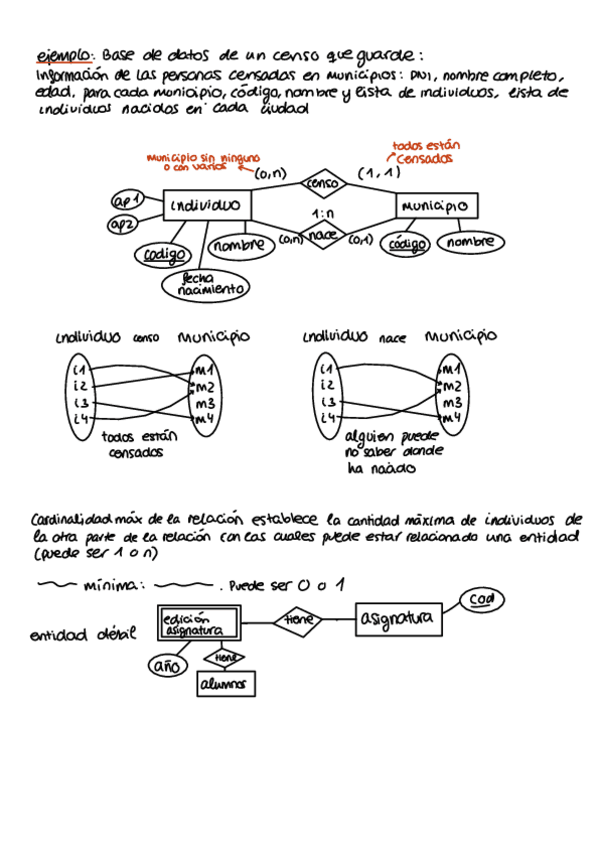 ejemplo: Base de datos de un censo que guarde:
Información de las personas censadas en municipios: DNI, nombre completo,
edad. para cada municipio, código, nombre y lista de individuos, lista de
individuos nacidos en cada ciudad
municipio sin ninguno
o con varios
(0,n)
todos están
censados
(1,1)
censo
ap1
ap2
individuo
municipio
1:n
codigo
nombre
(0,n)
nace
(0,1)
código
nombre
fecha
nacimiento
individuo censo municipio
i1 m1
i2 m2
i3 m3
i4 m4
todos están
censados
individuo nace municipio
i1 m1
i2 m2
i3 m3
i4 m4
alguien puede
no saber donde
ha nacido
Cardinalidad máx de la relación establece la cantidad máxima de individuos de
la otra parte de la relación con las cuales puede estar relacionado una entidad
(puede ser 1 o n)
mínima: . Puede ser 0 o 1
entidad débil
edición
asignatura
tiene
asignatura
cod
año
tiene
alumnos